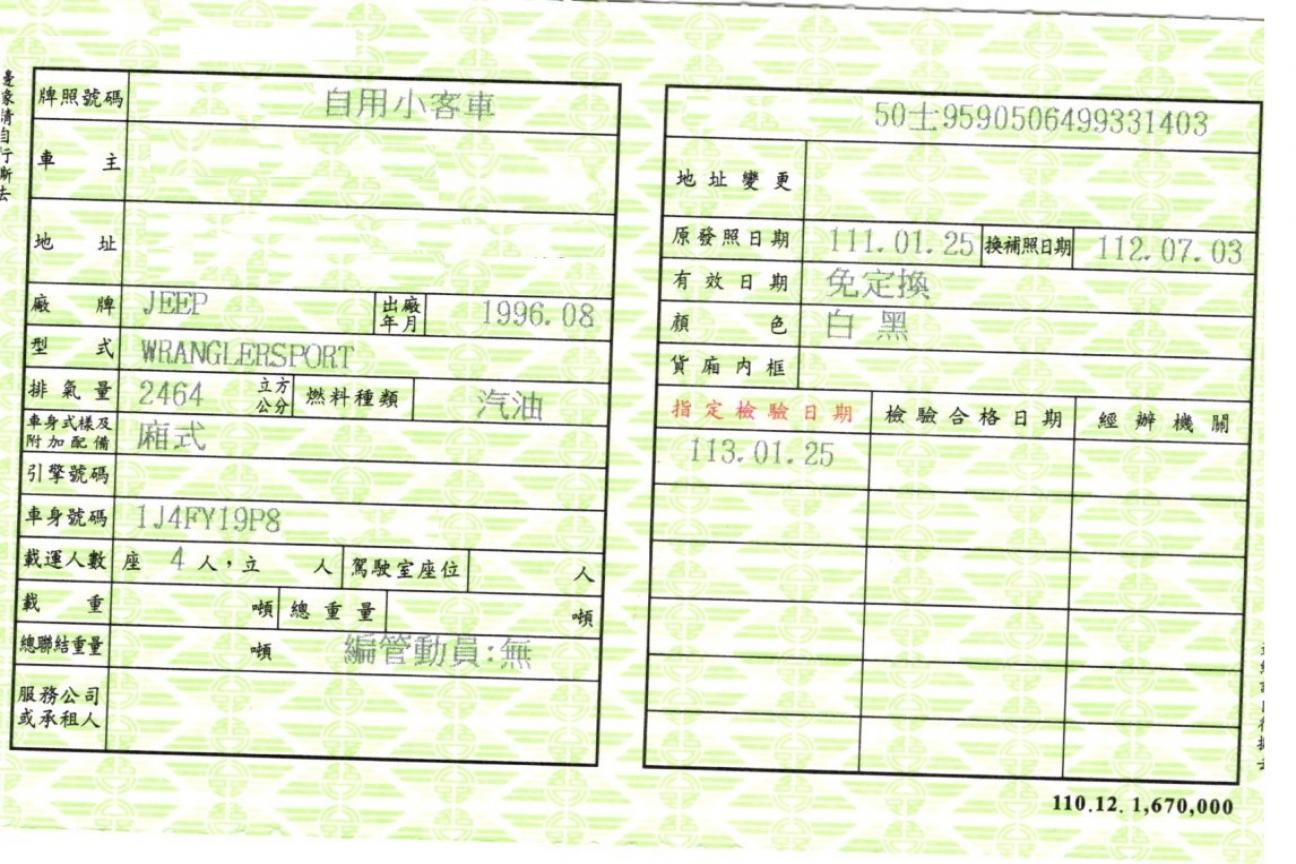 牌照號碼 自用小客車
車主
地址
廠牌 JEEP 出廠年月 1996.08
型式 WRANGLERSPORT
排氣量 2464 立方公分 燃料種類 汽油
車身式樣及附加配備 廂式
引擎號碼
車身號碼 1J4FY19P8
載運人數 座 4 人，立 人 駕駛室座位 人
載重 噸 總重量 噸
總聯結重量 噸 編管動員:無
服務公司或承租人
50士9590506499331403
地址變更
原發照日期 111.01.25 換補照日期 112.07.03
有效日期 免定換
顏色 白 黑
貨廂內框
指定檢驗日期 檢驗合格日期 經辦機關
113.01.25
110.12. 1,670,000